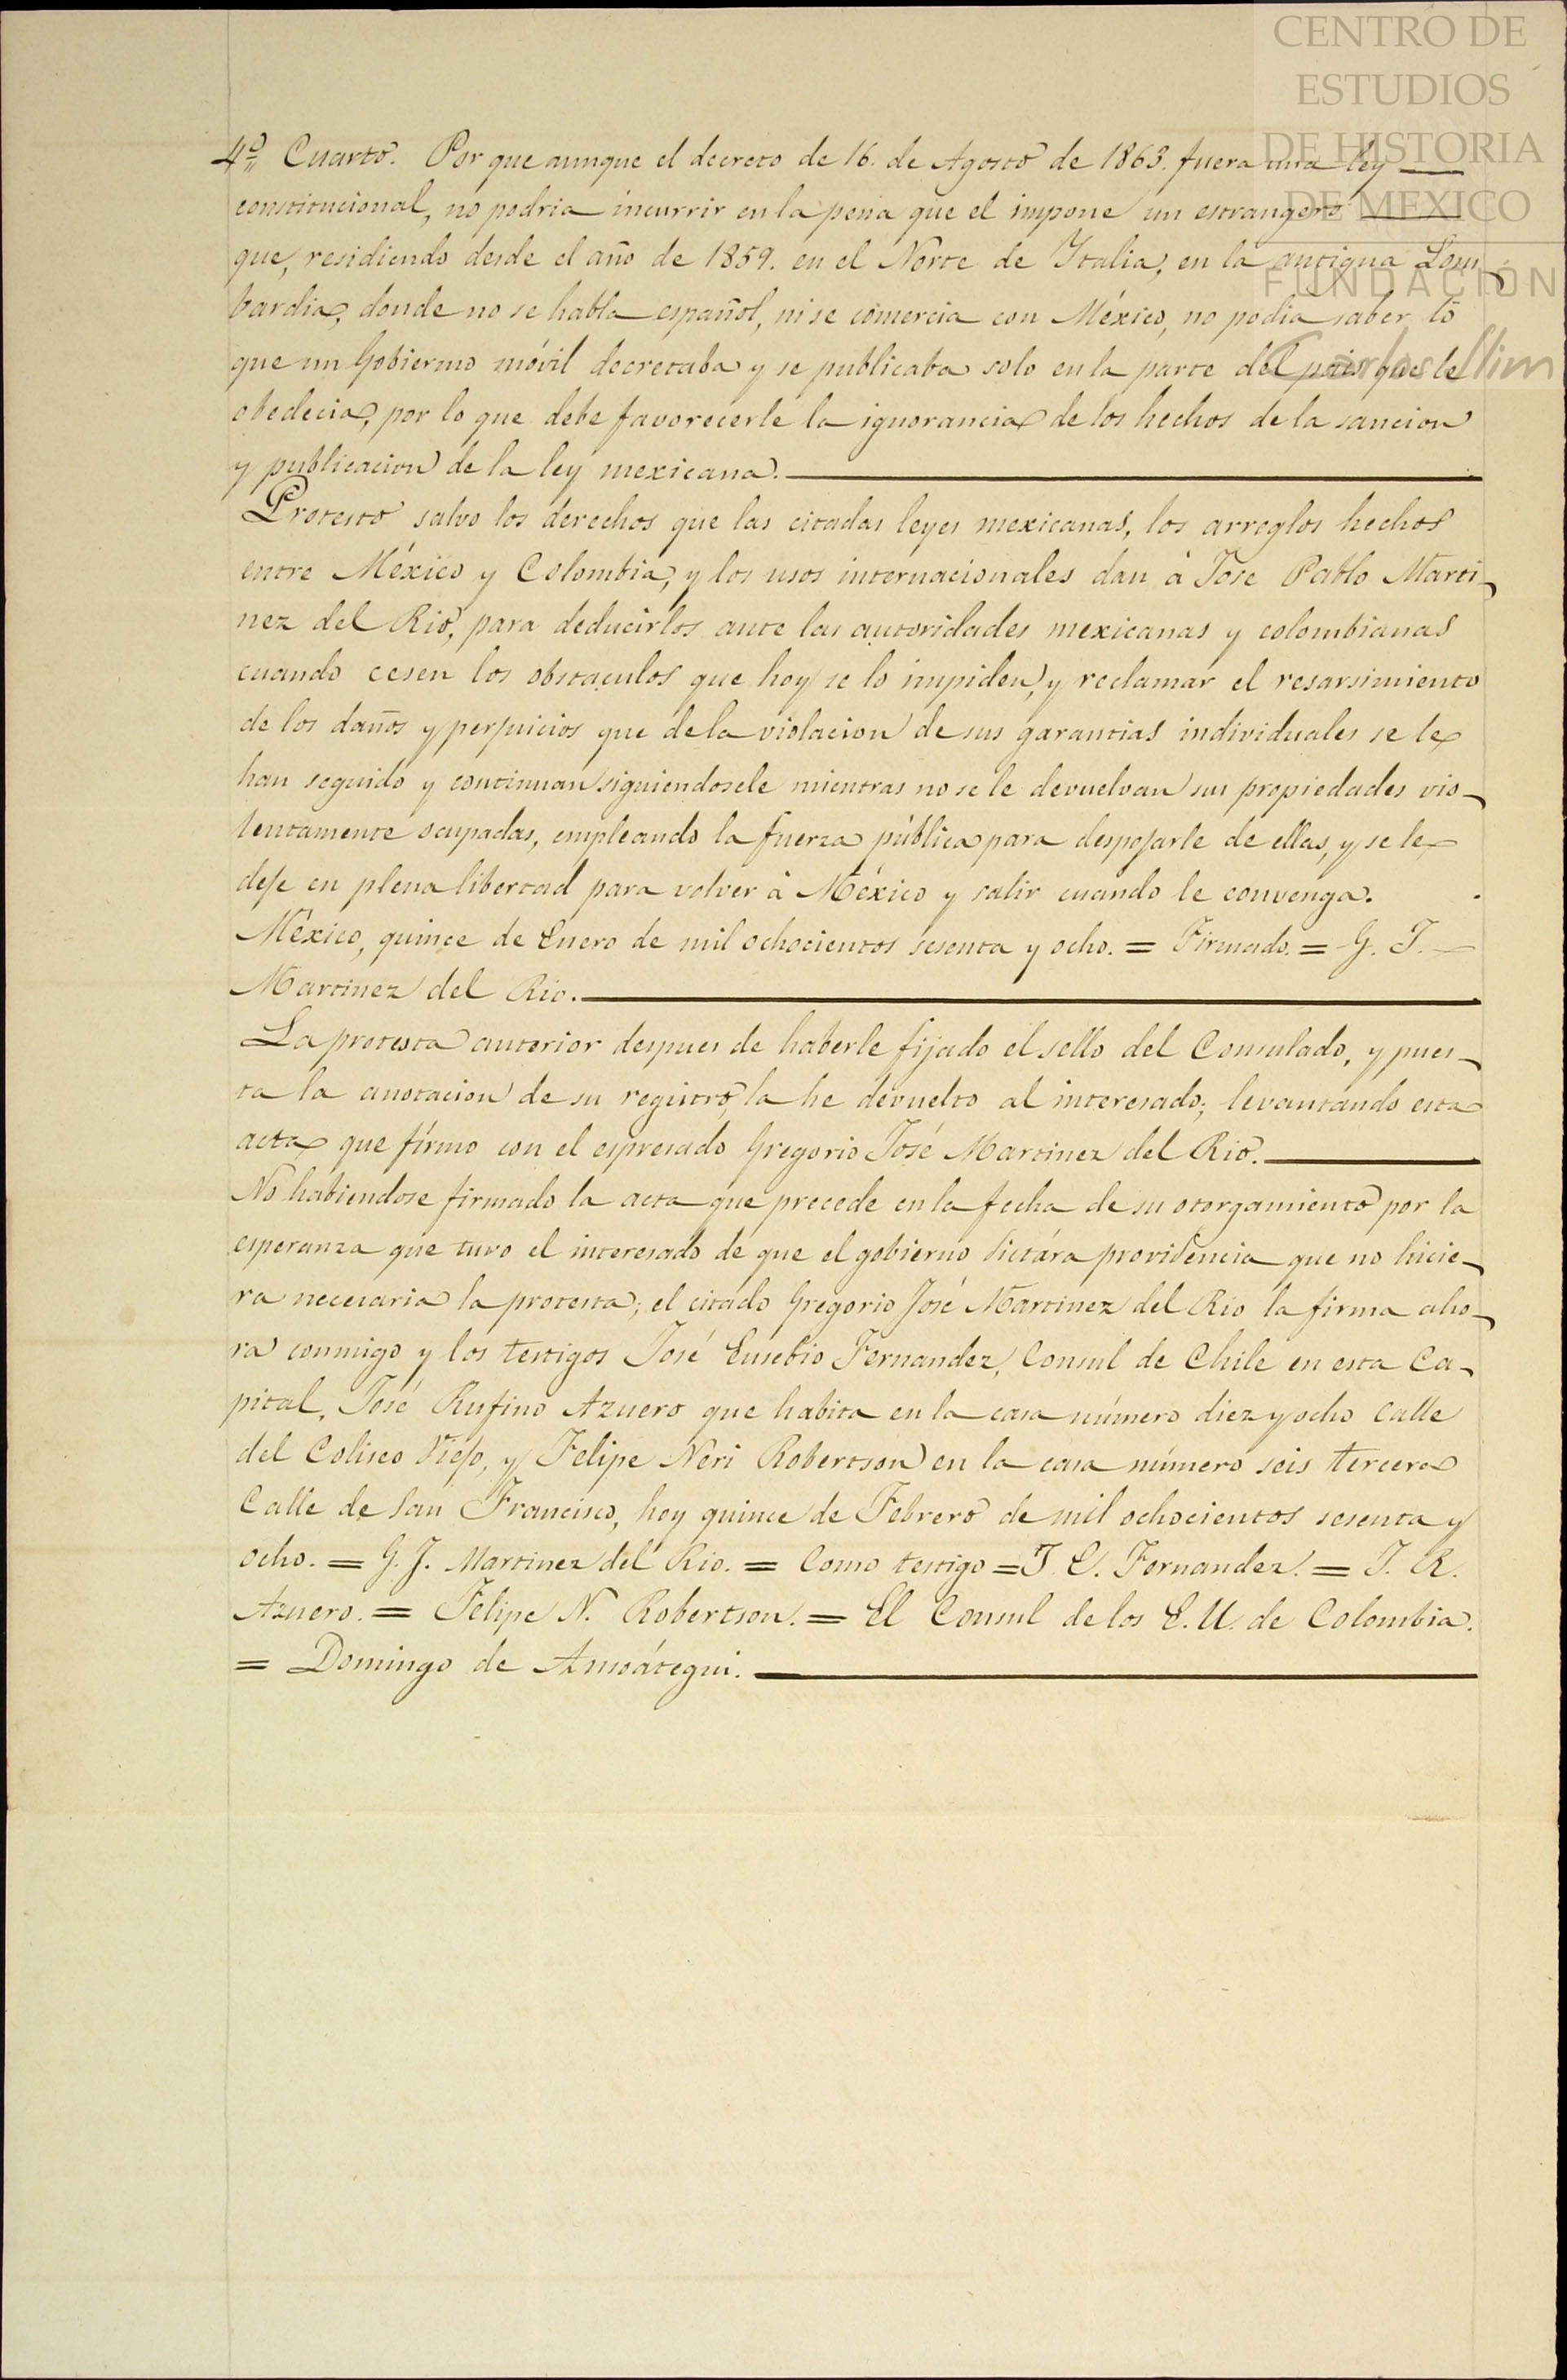 CENTRO DE
ESTUDIOS
DE HISTORIA
DE MEXICO
FUNDACIÓN
Carlos Slim
4º Cuarto. Por que aunque el decreto de 16. de Agosto de 1863. fuera una ley
constitucional, no podria incurrir en la pena que el impone un estrangero
que, residiendo desde el año de 1859. en el Norte de Italia, en la antigua Lom-
bardia, donde no se habla español, ni se comercia con México, no podia saber lo
que un Gobierno móvil decretaba y se publicaba solo en la parte del pais que le
obedecia, por lo que debe favorecerle la ignorancia de los hechos de la sancion
y publicacion de la ley mexicana.
Protesto salvo los derechos que las citadas leyes mexicanas, los arreglos hechos
entre México y Colombia, y los usos internacionales dan à Jose Pablo Marti-
nez del Rio, para deducirlos ante las autoridades mexicanas y colombianas
cuando cesen los obstaculos que hoy se lo impiden, y reclamar el resarsimiento
de los daños y perjuicios que de la violacion de sus garantias individuales se le
han seguido y continuan siguiendosele mientras no se le devuelvan sus propiedades vio-
lentamente ocupadas, empleando la fuerza pública para despojarle de ellas, y se le
deje en plena libertad para volver à México y salir cuando le convenga.
México, quince de Enero de mil ochocientos sesenta y ocho. = Firmado. = G. J.
Martinez del Rio.
La protesta anterior despues de haberle fijado el sello del Consulado, y pues-
ta la anotacion de su registro, la he devuelto al interesado; levantando esta
acta que fírmo con el espresado Gregorio José Martinez del Rio.
No habiendose firmado la acta que precede en la fecha de su otorgamiento por la
esperanza que tuvo el interesado de que el gobierno dictára providencia que no hicie-
ra necesaria la protesta; el citado Gregorio José Martinez del Rio la firma aho-
ra conmigo y los testigos José Eusebio Fernandez, Consul de Chile en esta Ca-
pital, José Rufino Azuero que habita en la casa número diez y ocho calle
del Coliseo Viejo, y Felipe Neri Robertson en la casa número seis tercera
Calle de San Francisco, hoy quince de Febrero de mil ochocientos sesenta y
ocho. = G. J. Martinez del Rio. = Como testigo = J. E. Fernandez. = J. R.
Azuero. = Felipe N. Robertson. = El Consul de los E. U. de Colombia.
= Domingo de Ansoátegui.